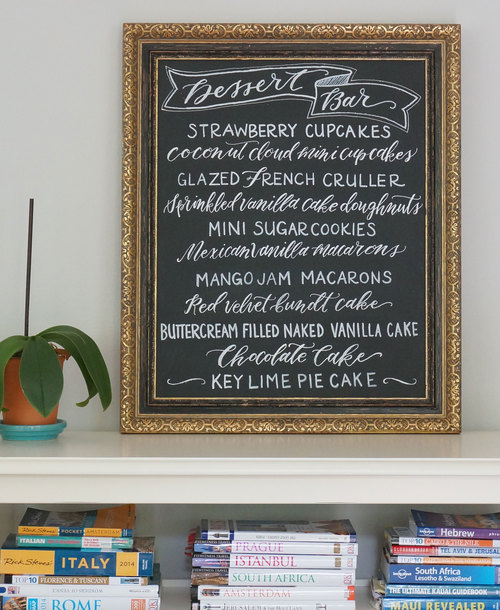 Dessert Bar
STRAWBERRY CUPCAKES
coconut cloud mini cupcakes
GLAZED FRENCH CRULLER
Sprinkled vanilla cake doughnuts
MINI SUGAR COOKIES
Mexican vanilla macarons
MANGO JAM MACARONS
Red velvet bundt cake
BUTTERCREAM FILLED NAKED VANILLA CAKE
Chocolate Cake
KEY LIME PIE CAKE
Rick Steves POCKET AMSTERDAM
ITALIAN
Rick Steves ITALY 2014
TOP 10 FLORENCE & TUSCANY
ROME
PRAGUE
ISTANBUL
SOUTH AFRICA
AMSTERDAM
JERUSALEM
Hebrew
TOP 10
TEL AVIV & JERUSALEM
South Africa
Lesotho & Swaziland
THE ULTIMATE KAUAI GUIDEBOOK
TOP 10
MAUI REVEALED